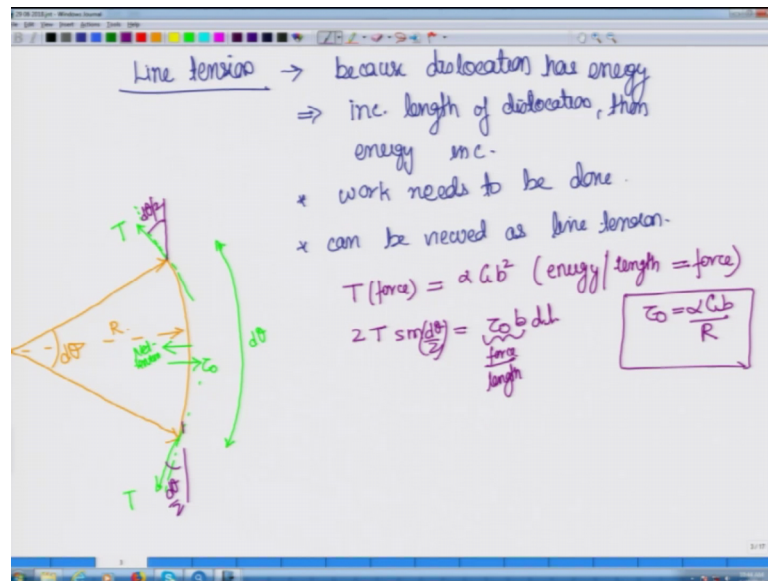 29-08-2018.jnt - Windows Journal
File Edit View Insert Actions Tools Help
Line tension → because dislocation has energy
⇒ inc. length of dislocation, then
energy inc.
* work needs to be done.
* can be viewed as line tension.
T (force) = αGb² (energy/length = force)
2T sin(dθ/2) = τ₀b dl
force
length
τ₀ = αGb
R
dθ/2
T
R
dθ
Net
tension
τ₀
dθ
T
dθ
2